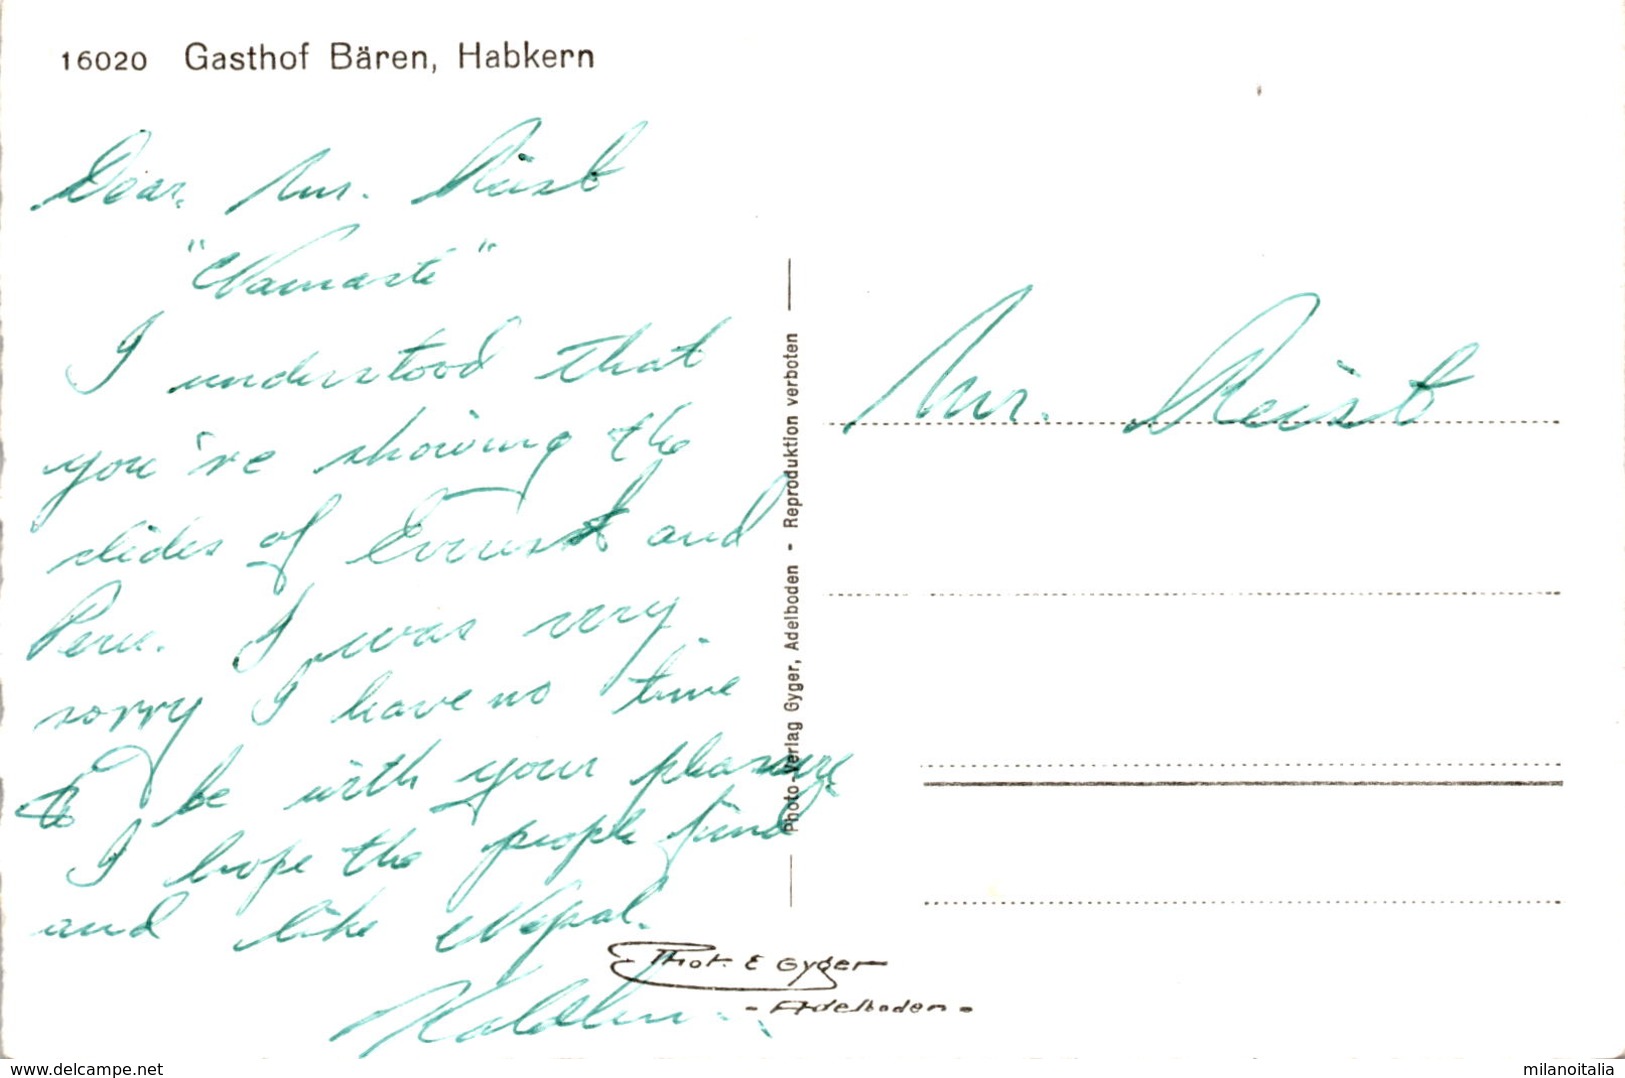 16020 Gasthof Bären, Habkern
Dear, Mr. Reist
"Namaste"
I understood that
you're showing the
slides of Everest and
Peru. I was very
sorry I have no time
to be with your pleasure.
I hope the people find
and like Nepal.
Mr. Reist
Photo-Verlag Gyger, Adelboden - Reproduktion verboten
Phot. E Gyger
- Adelboden -
www.delcampe.net
milanoitalia